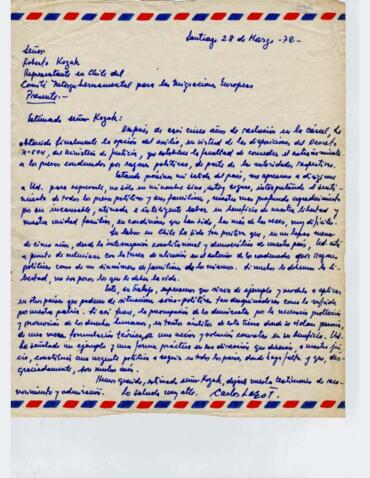 Santiago 28 de Marzo - 78 -
Señor
Roberto Kozak
Representante en Chile del
Comité Intergubernamental para las Migraciones Europeas
Presente.-
Estimado señor Kozak:
Después de casi cinco años de reclusión en la Cárcel, he
obtenido finalmente la opción del exilio, en virtud de las disposiciones del Decreto
Nº 504, del Ministerio de Justicia, que establece la facultad de conceder el extrañamiento
a los presos condenados por razones políticas, de parte de las autoridades respectivas.
Estando próxima mi salida del país, me apresuro a dirigirme
a Ud. para expresarle, no sólo en mi nombre sino, estoy seguro, interpretando el senti-
miento de todos los presos políticos y sus familiares, nuestro más profundo agradecimiento
por su incansable, atinada e inteligente labor en beneficio de nuestra libertad y
nuestra unidad familiar, en condiciones que han sido, las más de las veces, muy difíciles.
Su labor en Chile ha sido tan positiva que, en un lapso menor
de cinco años, desde la interrupción constitucional y democrática de nuestro país, Ud. está
a punto de culminar con la tarea de ubicación en el exterior de los condenados por razones
políticas como de un sinnúmero de familiares de los mismos. Si muchos le debemos la li-
bertad, no son pocos los que le deben la vida.
Este, su trabajo, esperamos que sirva de ejemplo y modelo a aplicar
en otros países que padecen de situaciones socio-políticas tan desquiciadoras como la sufrida
por nuestra patria. Si así fuera, la preocupación de los demócratas por la necesaria protección
y promoción de los derechos humanos, en tantos ámbitos de esta tierra donde se violan, pasaría
de una mera formulación teórica a una acción y solución concretas en su beneficio. Ud.
ha señalado un ejemplo y una forma práctica en esa dirección que
constituirá una urgente política a seguir en todos los países donde haga falta y que, des-
graciadamente, son muchos aún.
Humos querido, estimado señor Kozak, dejarle nuestro testimonio de reco-
nocimiento y admiración. Lo saluda muy atte. Carlos Lazo F.